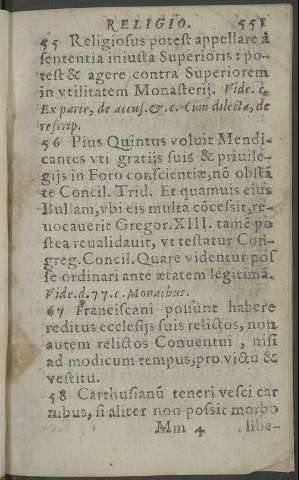 RELIGIO. 551
55 Religiosus potest appellare à
sententia iniusta Superioris: po-
test & agere contra Superiorem
in vtilitatem Monasterij. Vide. c.
Ex parte, de accus. & .c. Cùm dilecta, de
rescrip.
56 Pius Quintus voluit Mendi-
cantes vti gratijs suis & priuile-
gijs in Foro conscientiæ, nõ obstã
te Concil. Trid. Et quamuis eius
Bullam, vbi eis multa cõcessit, re-
uocauerit Gregor. XIII. tamẽ po
stea reualidauit, vt testatur Con-
greg. Concil. Quare videntur pos
se ordinari ante ætatem legitimã.
Vide.d.77.c. Monachus.
67 Franciscani possunt habere
reditus ecclesijs suis relictos, non
autem relictos Conuentui, nisi
ad modicum tempus, pro victu &
vestitu.
58 Carthusianũ teneri vesci car
nibus, si aliter non possit morbo
Mm 4 libe-